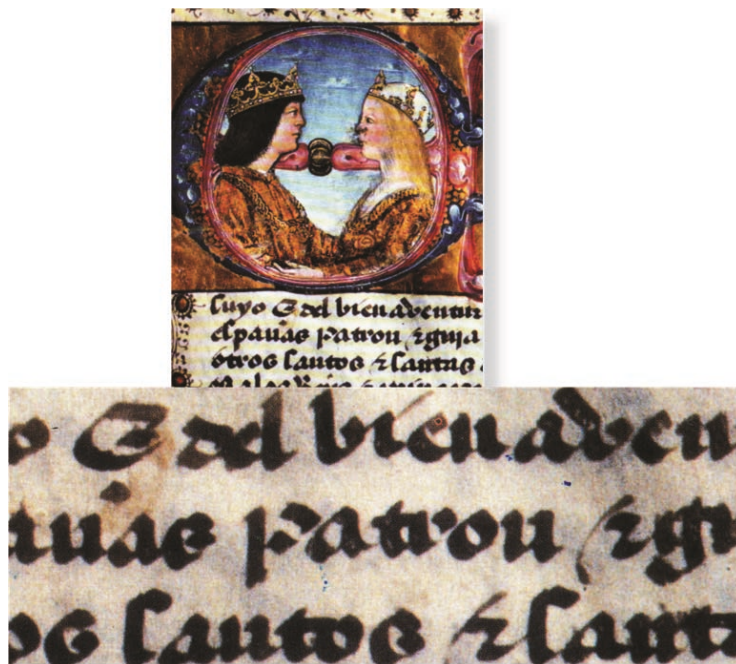 suyo E del bienaventur
espanas patron & guia
otros santos & santas
o E del bienaven
anas patron & gu
os santos & sant